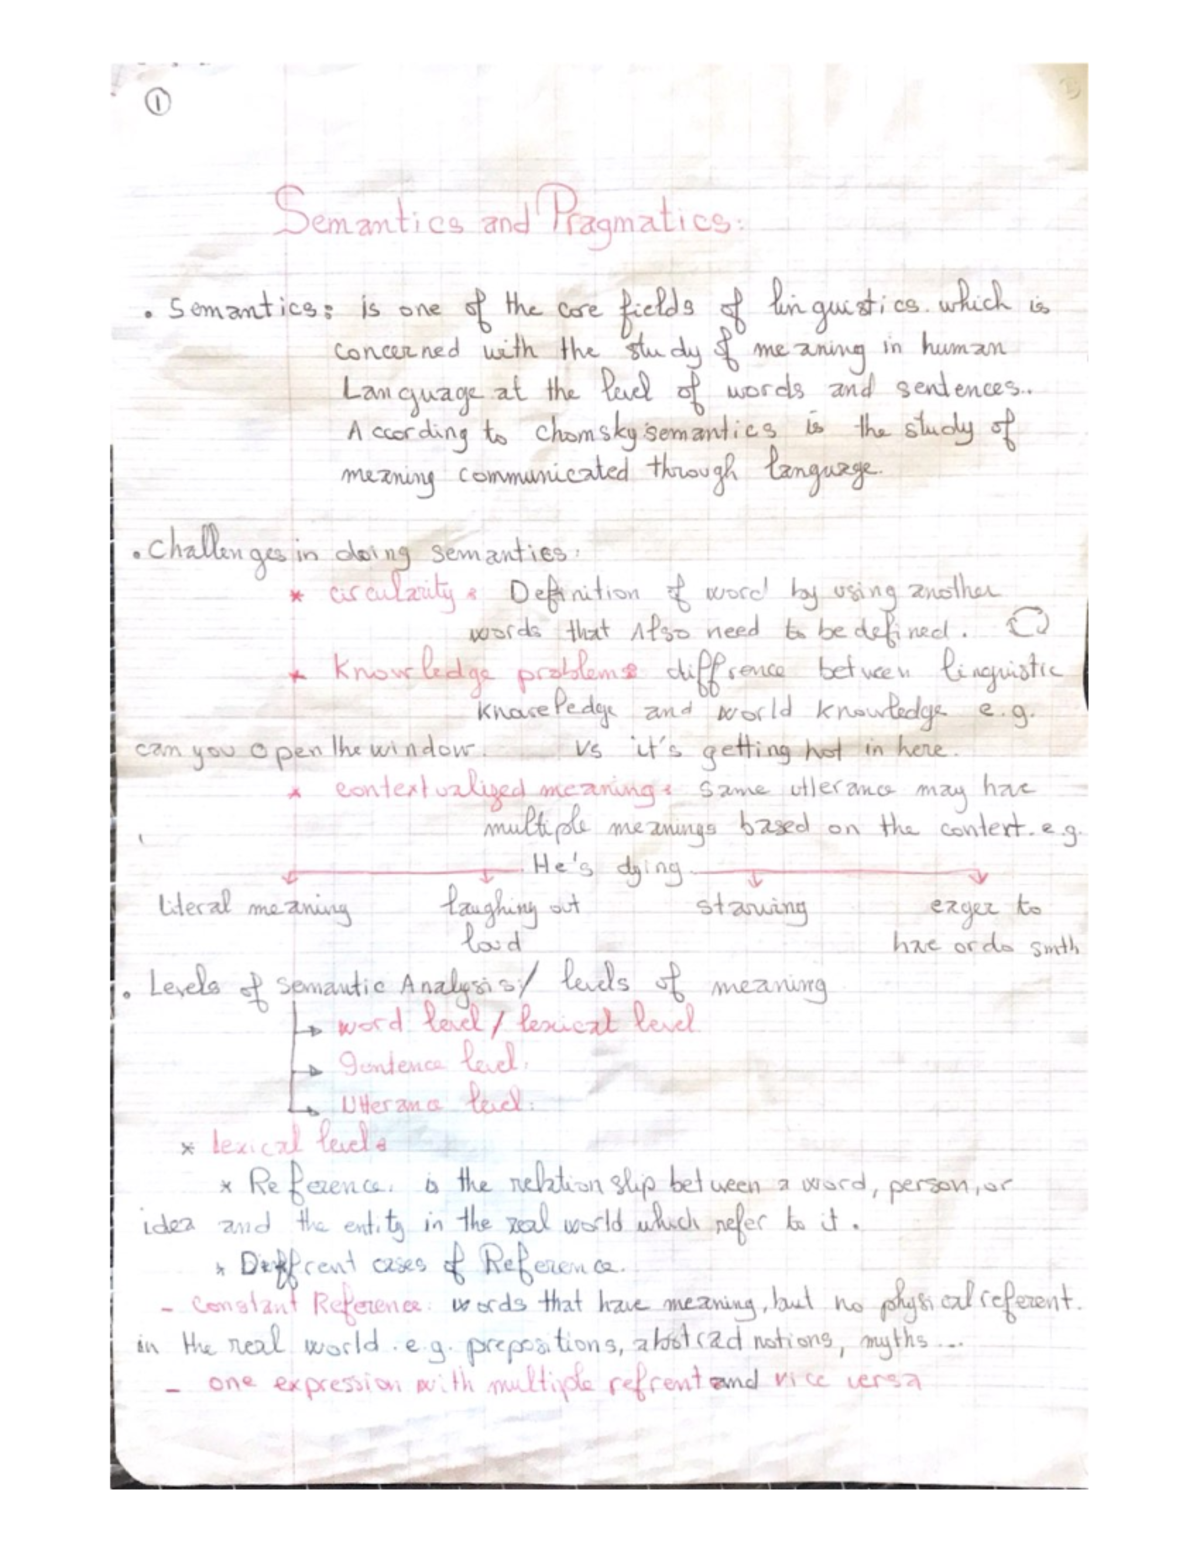 1
Semantics and Pragmatics:
• Semantics: is one of the core fields of linguistics. which is
concerned with the study of meaning in human
Language at the level of words and sentences..
According to chomsky semantics is the study of
meaning communicated through language.
• challenges in doing semantics:
* circularity: Definition of word by using another
words that Also need to be defined.
* Knowledge problem: diffrence between linguistic
knowledge and world knowledge e.g.
can you open the window. vs it's getting hot in here.
* contextualized meaning: same utterance may have
multiple meanings based on the context. e.g.
He's dying
literal meaning laughing out starving eager to
loud have or do smth
• Levels of semantic Analysis/ levels of meaning
word level / lexical level
Sentence level.
Utterance level.
* lexical level:
* Reference. is the relation ship between a word, person, or
idea and the entity in the real world which refer to it.
* Diffrent cases of Reference.
- constant Reference. words that have meaning, but no physical referent.
in the real world. e.g. prepositions, abstract notions, myths...
- one expression with multiple refrent and vice versa